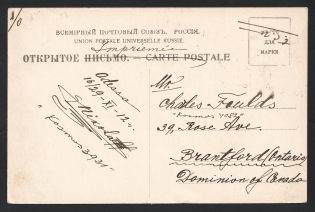 ВСЕМІРНЫЙ ПОЧТОВЫЙ СОЮЗЪ. РОССІЯ.
UNION POSTALE UNIVERSELLE RUSSIE.
Imprimé
ОТКРЫТОЕ ПИСЬМО. — CARTE POSTALE
ДЛЯ
МАРКИ
Odessa
16/29 XI-12
"Kosmos 3921"
Mr.
Charles Foulds
"Kosmos 4087"
39, Rose Ave.
Brantford (Ontario
Dominion of Canada